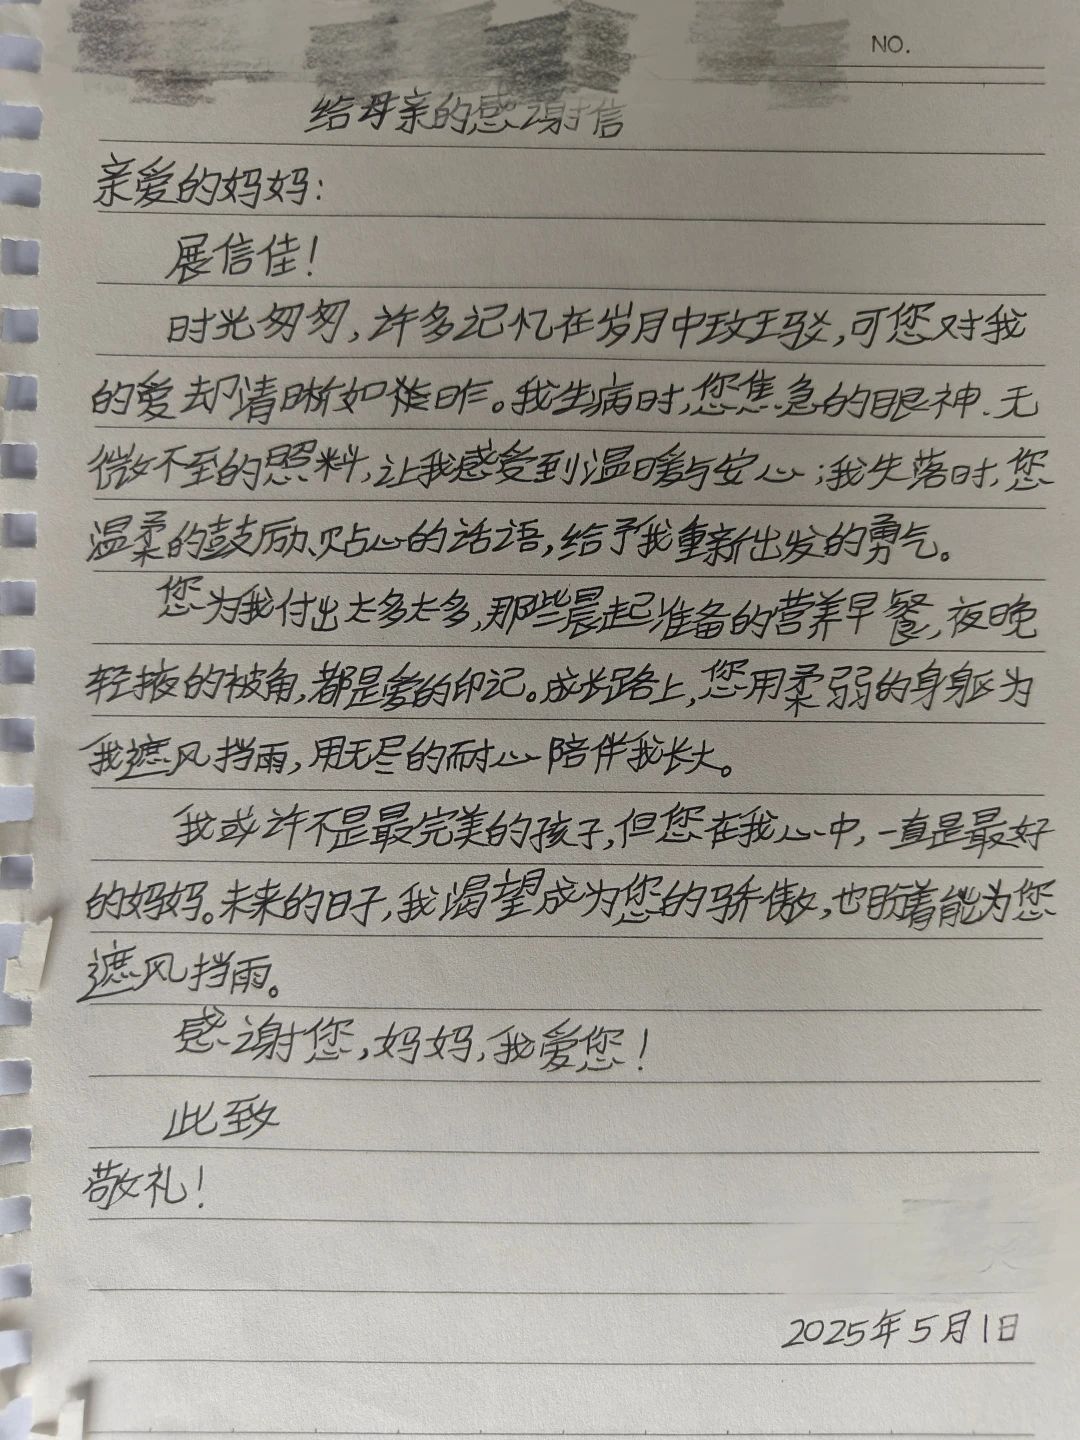 NO.
给母亲的感谢信
亲爱的妈妈:
展信佳!
时光匆匆,许多记忆在岁月中玟王驳,可您对我
的爱却清晰如昨。我生病时,您焦急的眼神、无
微不至的照料,让我感受到温暖与安心;我失落时,您
温柔的鼓励、贴心的话语,给予我重新出发的勇气。
您为我付出太多太多,那些晨起准备的营养早餐,夜晚
轻掖的被角,都是爱的印记。成长路上,您用柔弱的身躯为
我遮风挡雨,用无尽的耐心陪伴我长大。
我或许不是最完美的孩子,但您在我心中,一直是最好
的妈妈。未来的日子,我渴望成为您的骄傲,也盼着能为您
遮风挡雨。
感谢您,妈妈,我爱您!
此致
敬礼!
2025年5月1日